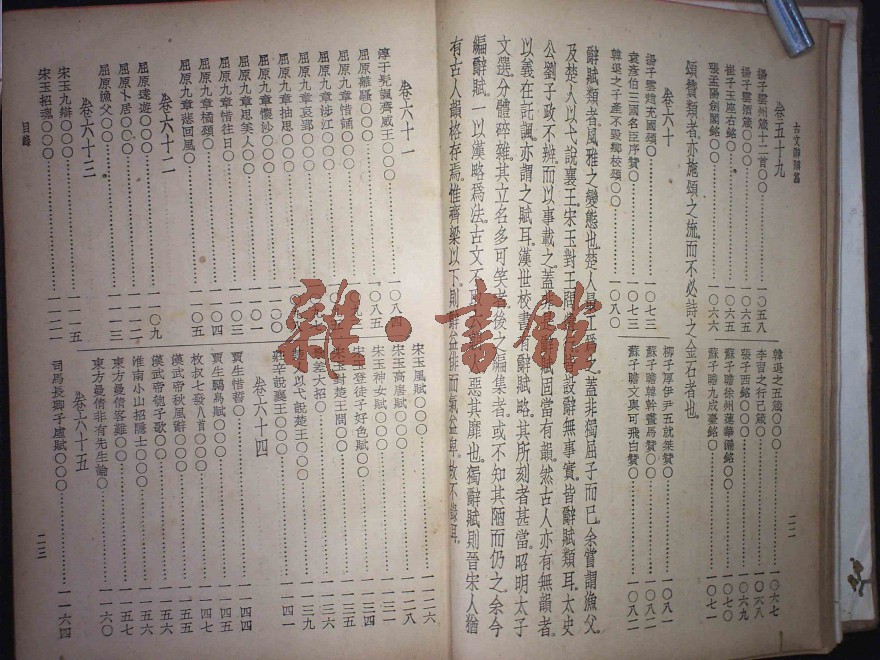 古文辭類纂
卷五十九
揚子雲州箴十二首〇〇 一〇五八
揚子雲酒箴〇〇 一〇六五
崔子玉座右銘〇〇 一〇六五
張孟陽劍閣銘〇〇 一〇六六
韓退之五箴〇〇〇 一〇六七
李習之行己箴〇 一〇六八
張子西銘〇〇〇 一〇六九
蘇子瞻徐州蓮華漏銘〇 一〇七〇
蘇子瞻九成臺銘〇〇 一〇七一
頌贊類者亦施頌之流而不必詩之金石者也
卷六十
揚子雲趙充國頌〇 一〇七三
袁彥伯三國名臣序贊〇 一〇七三
韓退之子產不毀鄉校頌〇〇 一〇八〇
柳子厚伊尹五就桀贊〇 一〇八一
蘇子瞻韓幹畫馬贊〇〇 一〇八二
蘇子瞻文與可飛白贊〇〇 一〇八二
辭賦類者風雅之變態也楚人最工爲之蓋非獨屈子而已余嘗謂漁父
及楚人以弋說襄王宋玉對王問皆設辭無事實皆辭賦類耳太史
公劉子政不辨而以事載之蓋固當有韻然古人亦有無韻者
以義在託諷亦謂之賦耳漢世校書辭賦略其所列者甚當昭明太子
文選分體碎雜其立名多可笑者後之編集者或不知其陋而仍之余今
編辭賦一以漢略爲法古文不惡其靡也獨辭賦則晉宋人猶
有古人韻格存焉惟齊梁以下則辭益俳而氣益卑故不錄耳
二二
卷六十一
淳于髡諷齊威王〇〇〇 一〇八四
屈原離騷〇〇〇 一〇八五
屈原九章惜誦〇〇〇
屈原九章涉江〇〇〇
屈原九章哀郢〇〇〇
屈原九章抽思〇〇〇
屈原九章懷沙〇〇〇
屈原九章思美人〇〇〇 一〇一
屈原九章惜往日〇〇〇
屈原九章橘頌〇〇〇
屈原九章悲回風〇〇〇 一一〇五
卷六十二
屈原遠遊〇〇〇 一一〇九
屈原卜居〇〇〇 一一一三
屈原漁父〇〇〇 一一一三
卷六十三
宋玉九辯〇〇〇 一一一五
宋玉招魂〇〇〇 一一二一
目錄
宋玉風賦〇〇〇 一一二六
宋玉高唐賦〇〇〇 一一二八
宋玉神女賦〇〇〇 一一三一
宋玉登徒子好色賦〇〇〇 一一三四
宋玉對楚王問〇〇〇 一一三五
景差大招〇〇〇 一一三六
楚人以弋說楚王〇〇〇 一一三九
莊辛說襄王〇〇〇 一一四一
卷六十四
賈生惜誓〇〇〇 一一四四
賈生鵩鳥賦〇〇〇 一一四五
枚叔七發八首〇〇〇 一一四七
漢武帝秋風辭〇〇〇 一一五六
漢武帝瓠子歌〇〇〇 一一五六
淮南小山招隱士〇〇〇 一一五七
東方曼倩客難〇〇〇 一一五七
東方曼倩非有先生論〇 一一六〇
卷六十五
司馬長卿子虛賦〇〇〇 一一六四
二三
雜·書館